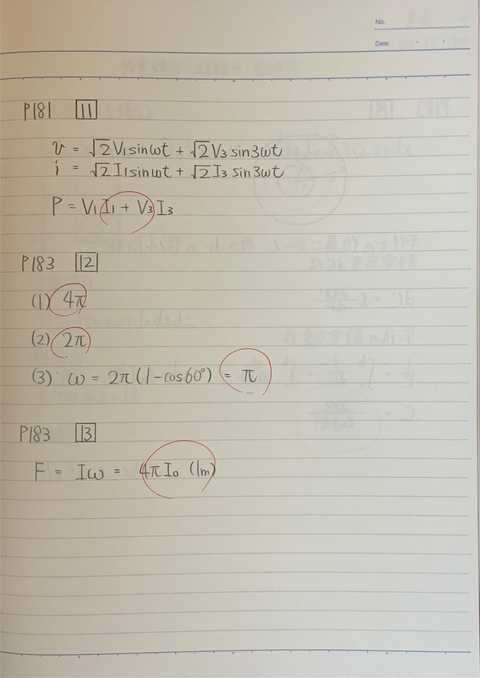 No.
Date
P181 11
v = √2 V₁ sinωt + √2 V₃ sin3ωt
i = √2 I₁ sinωt + √2 I₃ sin3ωt
P = V₁I₁ + V₃I₃
P183 12
(1) 4π
(2) 2π
(3) ω = 2π(1-cos60°) = π
P183 13
F = Iω = 4πI₀ (lm)